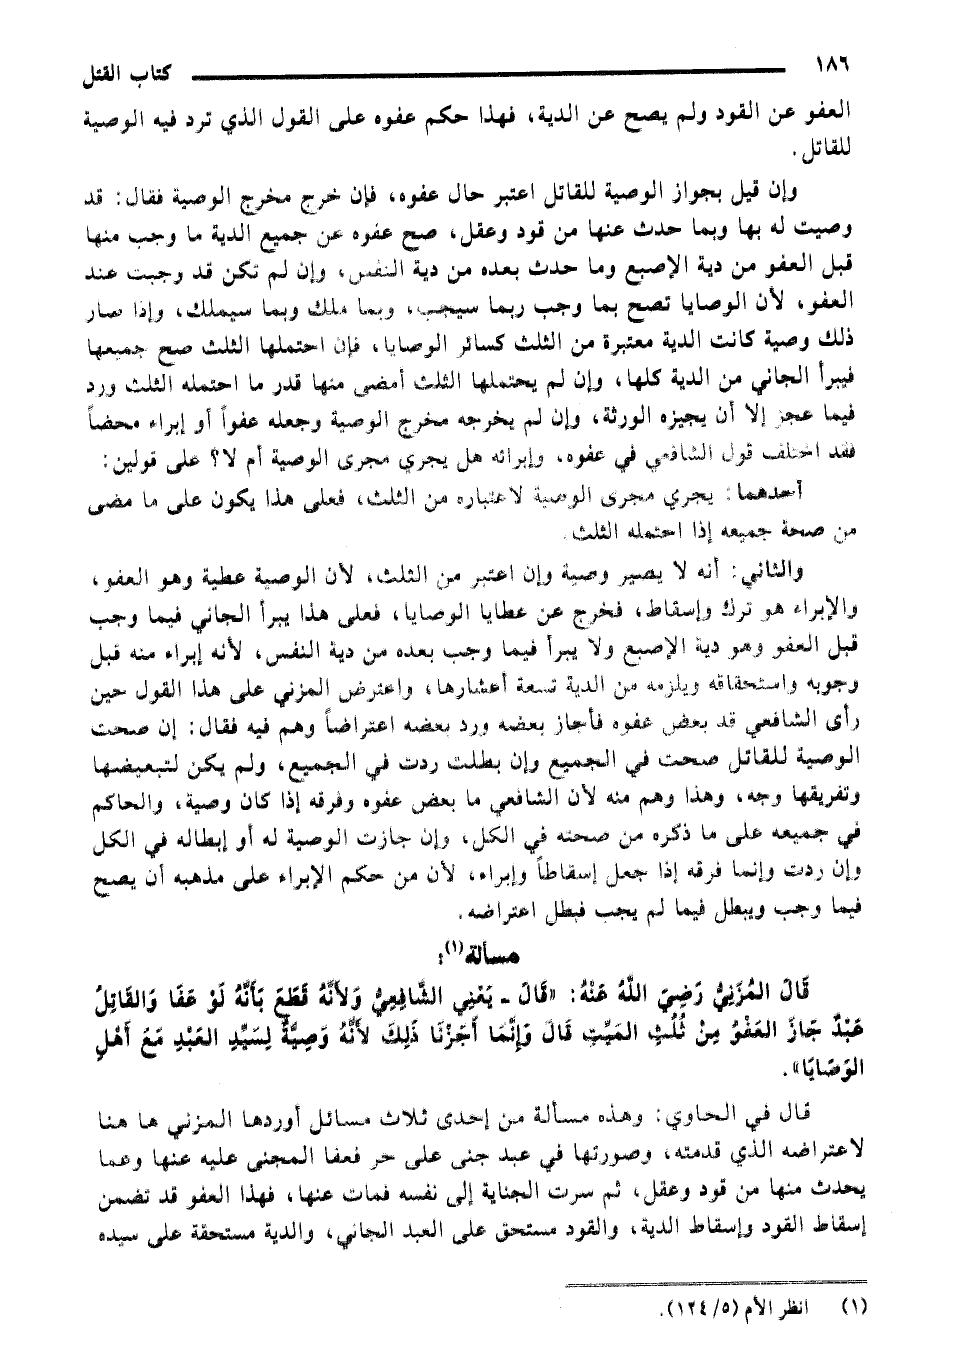 ١٨٦ كتاب القتل
العفو عن القود ولم يصح عن الدية، فهذا حكم عفوه على القول الذي ترد فيه الوصية
للقاتل.
وإن قيل بجواز الوصية للقاتل اعتبر حال عفوه، فإن خرج مخرج الوصية فقال: قد
وصيت له بها وبما حدث عنها من قود وعقل، صح عفوه عن جميع الدية ما وجب منها
قبل العفو من دية الإصبع وما حدث بعده من دية النفس، وإن لم تكن قد وجبت عند
العفو، لأن الوصايا تصح بما وجب ربما سيجب، وبما ملك وبما سيملك، وإذا صار
ذلك وصية كانت الدية معتبرة من الثلث كسائر الوصايا، فإن احتملها الثلث صح جميعها
فيبرأ الجاني من الدية كلها، وإن لم يحتملها الثلث أمضى منها قدر ما احتمله الثلث ورد
فيما عجز إلا أن يجيزه الورثة، وإن لم يخرجه مخرج الوصية وجعله عفواً أو إبراء محضاً
فقد اختلف قول الشافعي في عفوه، وإبرائه هل يجري مجرى الوصية أم لا؟ على قولين:
أحدهما: يجري مجرى الوصية لاعتباره من الثلث، فعلى هذا يكون على ما مضى
من صحة جميعه إذا احتمله الثلث.
والثاني: أنه لا يصير وصية وإن اعتبر من الثلث، لأن الوصية عطية وهو العفو،
والإبراء هو ترك وإسقاط، فخرج عن عطايا الوصايا، فعلى هذا يبرأ الجاني فيما وجب
قبل العفو وهو دية الإصبع ولا يبرأ فيما وجب بعده من دية النفس، لأنه إبراء منه قبل
وجوبه واستحقاقه ويلزمه من الدية تسعة أعشارها، واعترض المزني على هذا القول حين
رأى الشافعي قد بعض عفوه فأجاز بعضه ورد بعضه اعتراضاً وهم فيه فقال: إن صحت
الوصية للقاتل صحت في الجميع وإن بطلت ردت في الجميع، ولم يكن لتبعيضها
وتفريقها وجه، وهذا وهم منه لأن الشافعي ما بعض عفوه وفرقه إذا كان وصية، والحاكم
في جميعه على ما ذكره من صحته في الكل، وإن جازت الوصية له أو إبطاله في الكل
وإن ردت وإنما فرقه إذا جعل إسقاطاً وإبراء، لأن من حكم الإبراء على مذهبه أن يصح
فيما وجب ويبطل فيما لم يجب فبطل اعتراضه.
مسألة(١):
قَالَ المُزَنِيُّ رَضِيَ اللَّهُ عَنْهُ: «قَالَ ـ يَعْنِي الشَّافِعِيُّ وَلأَنَّهُ قَطَعَ بِأَنَّهُ لَوْ عَفَا وَالقَاتِلُ
عَبْدٌ جَازَ العَفْوُ مِنْ ثُلُثِ المَيِّتِ قَالَ وَإِنَّمَا أَجَزْنَا ذَلِكَ لأَنَّهُ وَصِيَّةٌ لِسَيِّدِ العَبْدِ مَعَ أَهْلِ
الوَصَايَا».
قال في الحاوي: وهذه مسألة من إحدى ثلاث مسائل أوردها المزني ها هنا
لاعتراضه الذي قدمته، وصورتها في عبد جنى على حر فعفا المجنى عليه عنها وعما
يحدث منها من قود وعقل، ثم سرت الجناية إلى نفسه فمات عنها، فهذا العفو قد تضمن
إسقاط القود وإسقاط الدية، والقود مستحق على العبد الجاني، والدية مستحقة على سيده
(١) انظر الأم (٥/ ١٢٤).